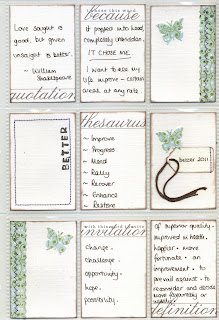 Love sought is
good, but given
unsought is better.
~ William
Shakespeare
quotation
I chose this word
because
it popped into head,
completely unbidden.
IT CHOSE ME
I want to see my
life improve - certain
areas at any rate
BETTER
thesaurus
~ Improve
~ Progress
~ Mend
~ Rally
~ Recover
~ Enhance
~ Restore
better 2011
with this word
invitation
change.
challenge.
opportunity.
hope.
possibility.
of superior quality.
improved in health.
happier. more
fortunate. an
improvement. to
prevail against. to
reconsider and decide
more favourably or
definition